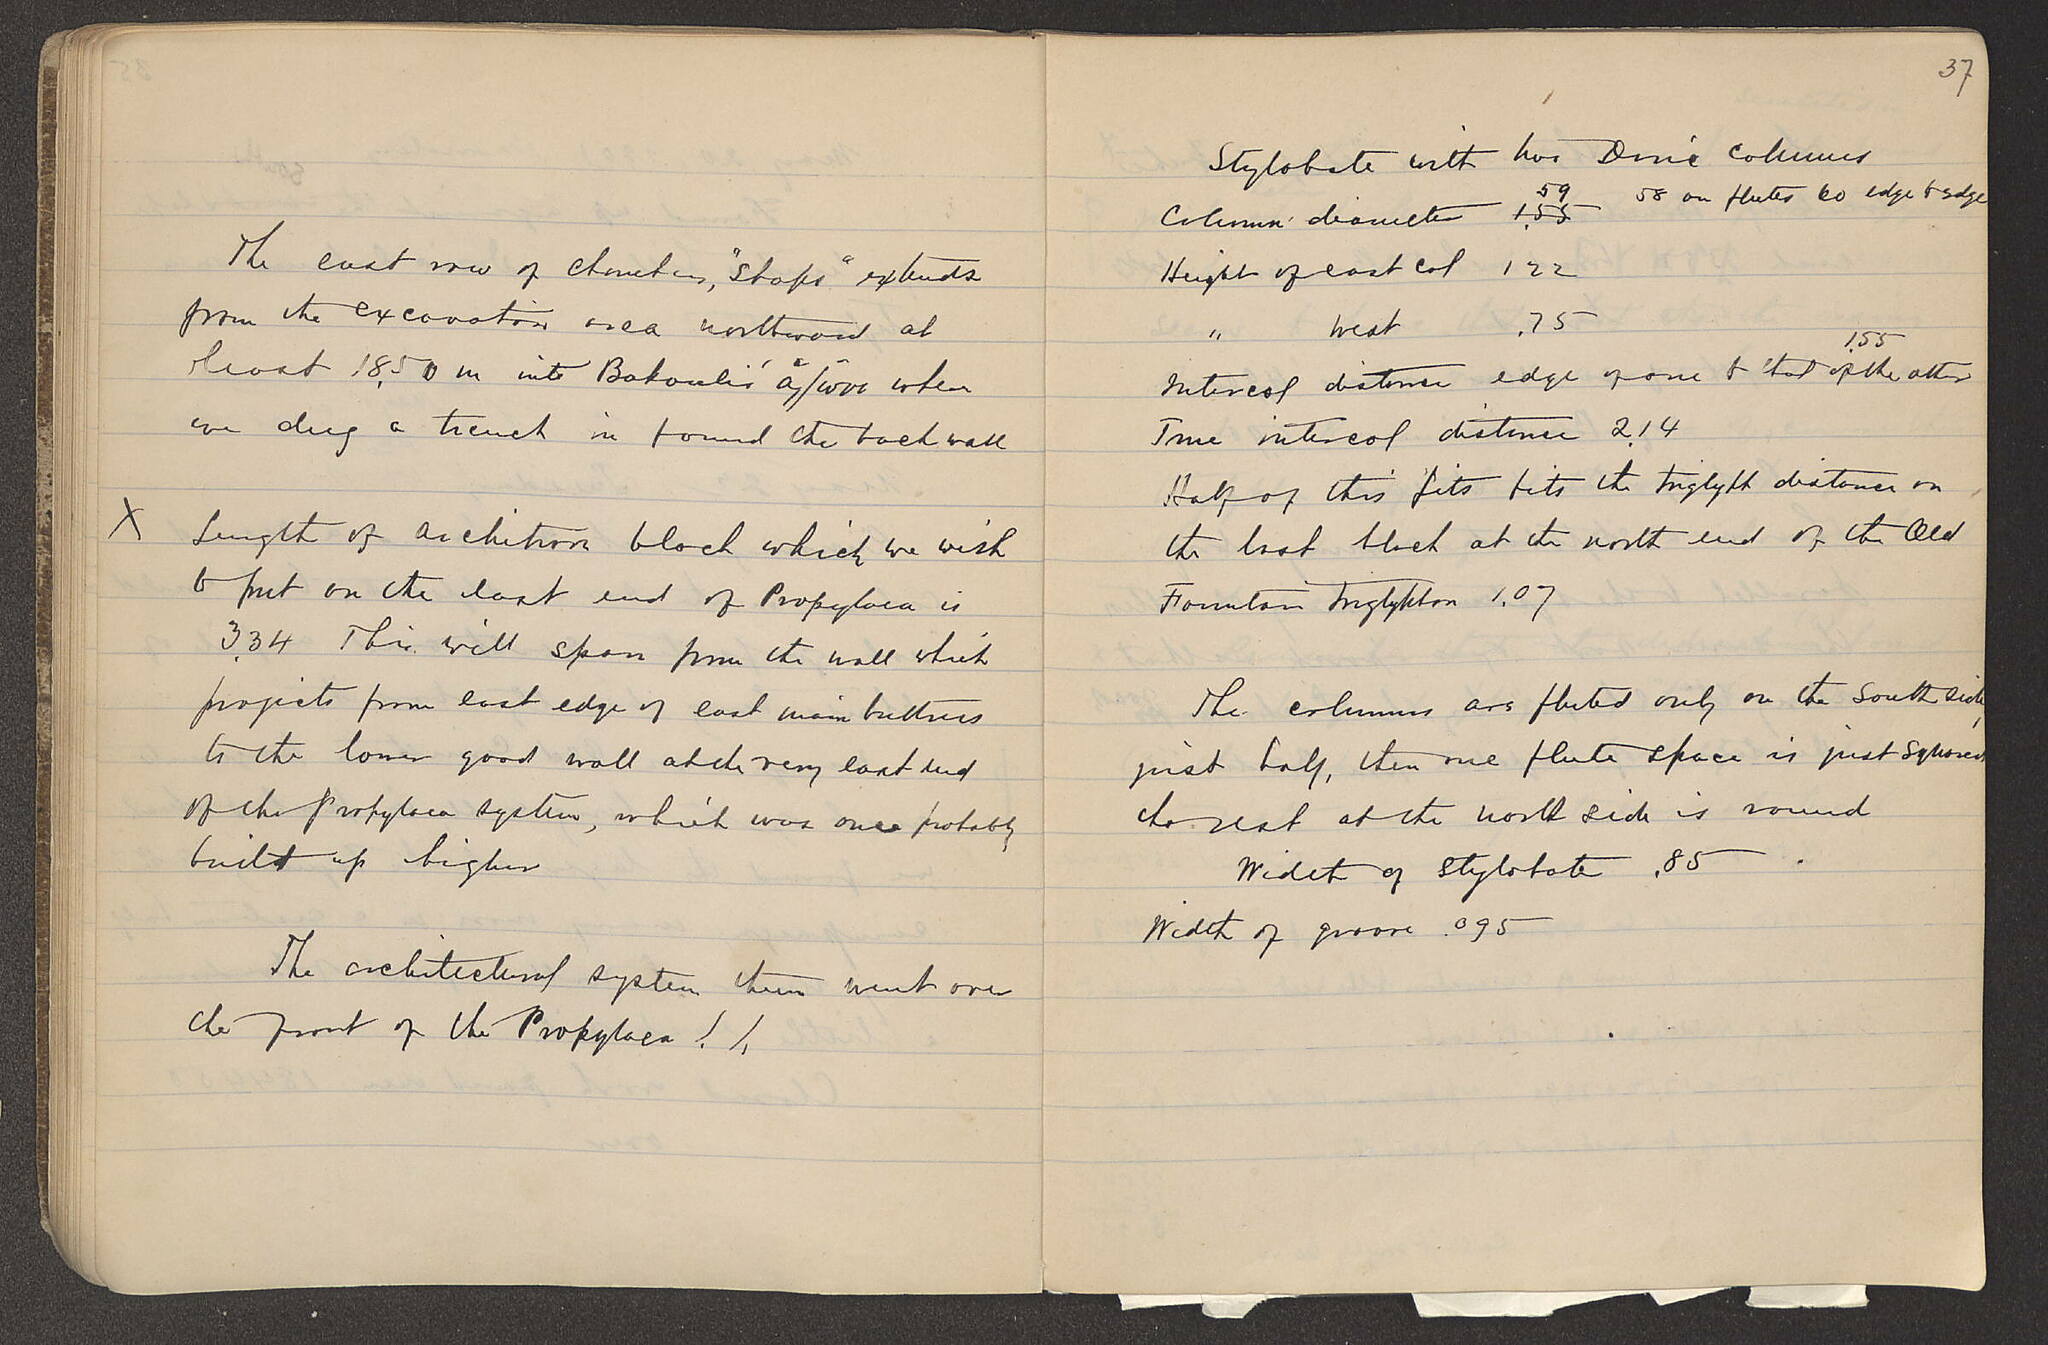 The east row of chambers, "shops" extends
from the excavation area northward at
least 18.50 m into Bakoulis' when
we dug a trench in found the back wall
X Length of architrave block which we wish
to put on the east end of Propylaea is
3.34 This will span from the wall which
projects from east edge of east main buttress
to the lower good wall at the very east end
of the Propylaea system, which was once probably
built up higher
The architectural system then went over
the front of the Propylaea ! !.
37
Stylobate with two Doric columns
Column diameter 1.55 .59 58 on flutes 60 edge to edge
Height of east col 122
" West .75
Intercol distance edge of one to that of the other 1.55
True intercol distance 2.14
Half of this fits fits the triglyph distance on
the last block at the north end of the Old
Fountain triglyphon 1.07
The columns are fluted only on the south side,
just half, then one flute space is just squared
the rest at the north side is round
Width of stylobate .85
Width of groove .095